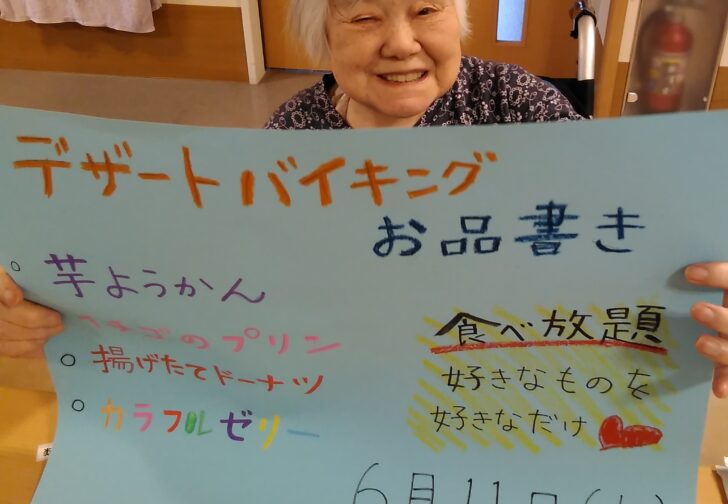 デザートバイキング
お品書き
○ 芋ようかん
のプリン
○ 揚げたてドーナツ
○ カラフルゼリー
食べ放題
好きなものを
好きなだけ
6月11日